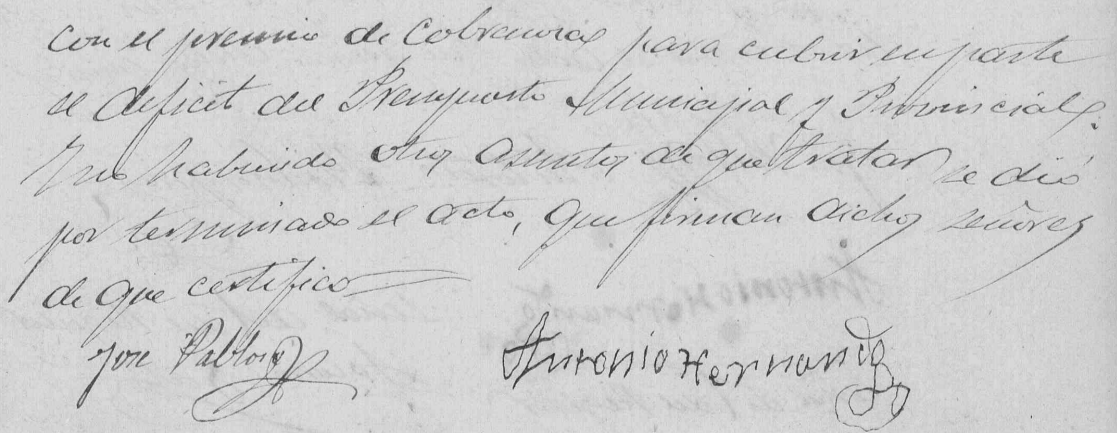 con el premio de cobranzas para cubrir en parte
el deficit del Presupuesto Municipal y Provincial.
Y no habiendo otros asuntos de que tratar se dió
por terminado el acto, que firman dichos señores
de que certifico
José Pablos
Antonio Hernando